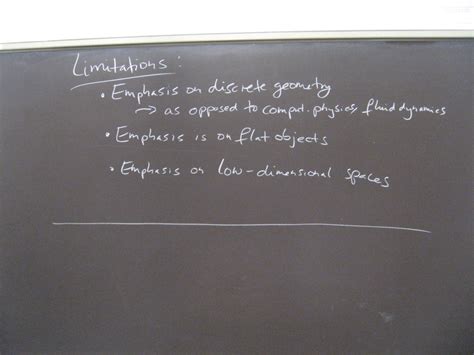 Limitations:
• Emphasis on discrete geometry
→ as opposed to comput. physics, fluid dynamics
• Emphasis is on flat objects
• Emphasis on low-dimensional spaces